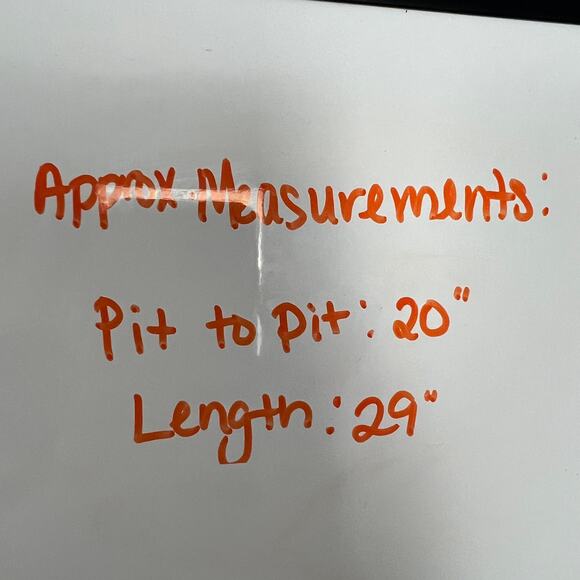 Approx Measurements:
Pit to pit: 20"
Length: 29"